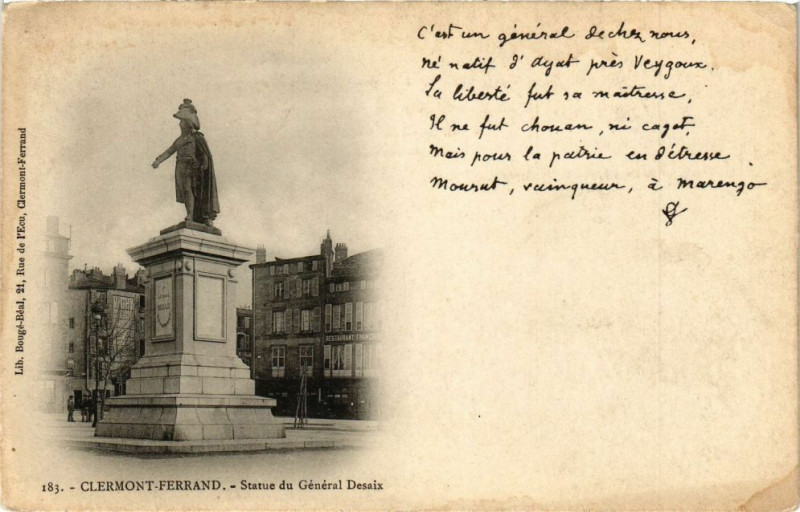 C'est un général de chez nous,
né natif d'Ayat près Veygoux.
La liberté fut sa maîtresse,
Il ne fut chouan, ni cagot,
Mais pour la patrie en détresse
Mourut, vainqueur, à Marengo
Lib. Bougé-Béal, 21, Rue de l'Ecu, Clermont-Ferrand
RESTAURANT FRANÇAIS
183. - CLERMONT-FERRAND. - Statue du Général Desaix